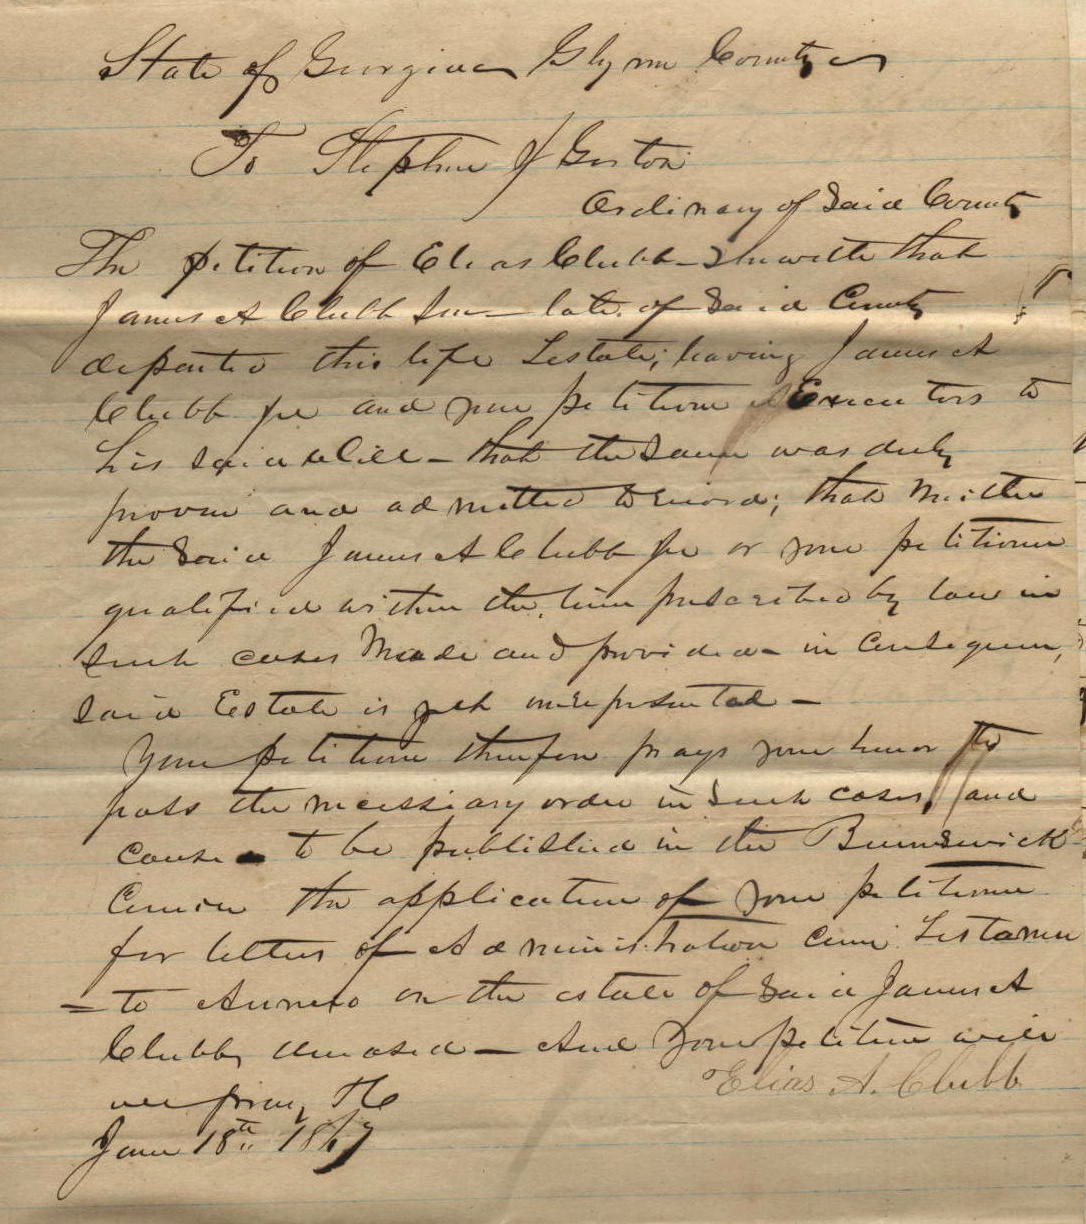 State of Georgia Glynn County
To Stephen J Gorton
Ordinary of Said County
The petition of Elias Clubb Sheweth that
James A Clubb Snr late of Said County
departed this life testate; leaving James A
Clubb Jr and your petitioner Executors to
his said Will - that the Same was duly
proven and admitted to record; that Neither
the Said James A Clubb Jr or your petitioner
qualified within the time prescribed by law in
such cases Made and provided - in Consequence,
said Estate is yet unrepresented -
Your petitioner therefore prays your honor to
pass the necessary order in Such cases, and
cause to be published in the Brunswick
Courier the application of your petitioner
for letters of Administration Cum Testamen
= to Annexo on the estate of Said James A
Clubb, deceased - And Your petitioner will
ever pray, &c
Elias A. Clubb
June 18th 1867